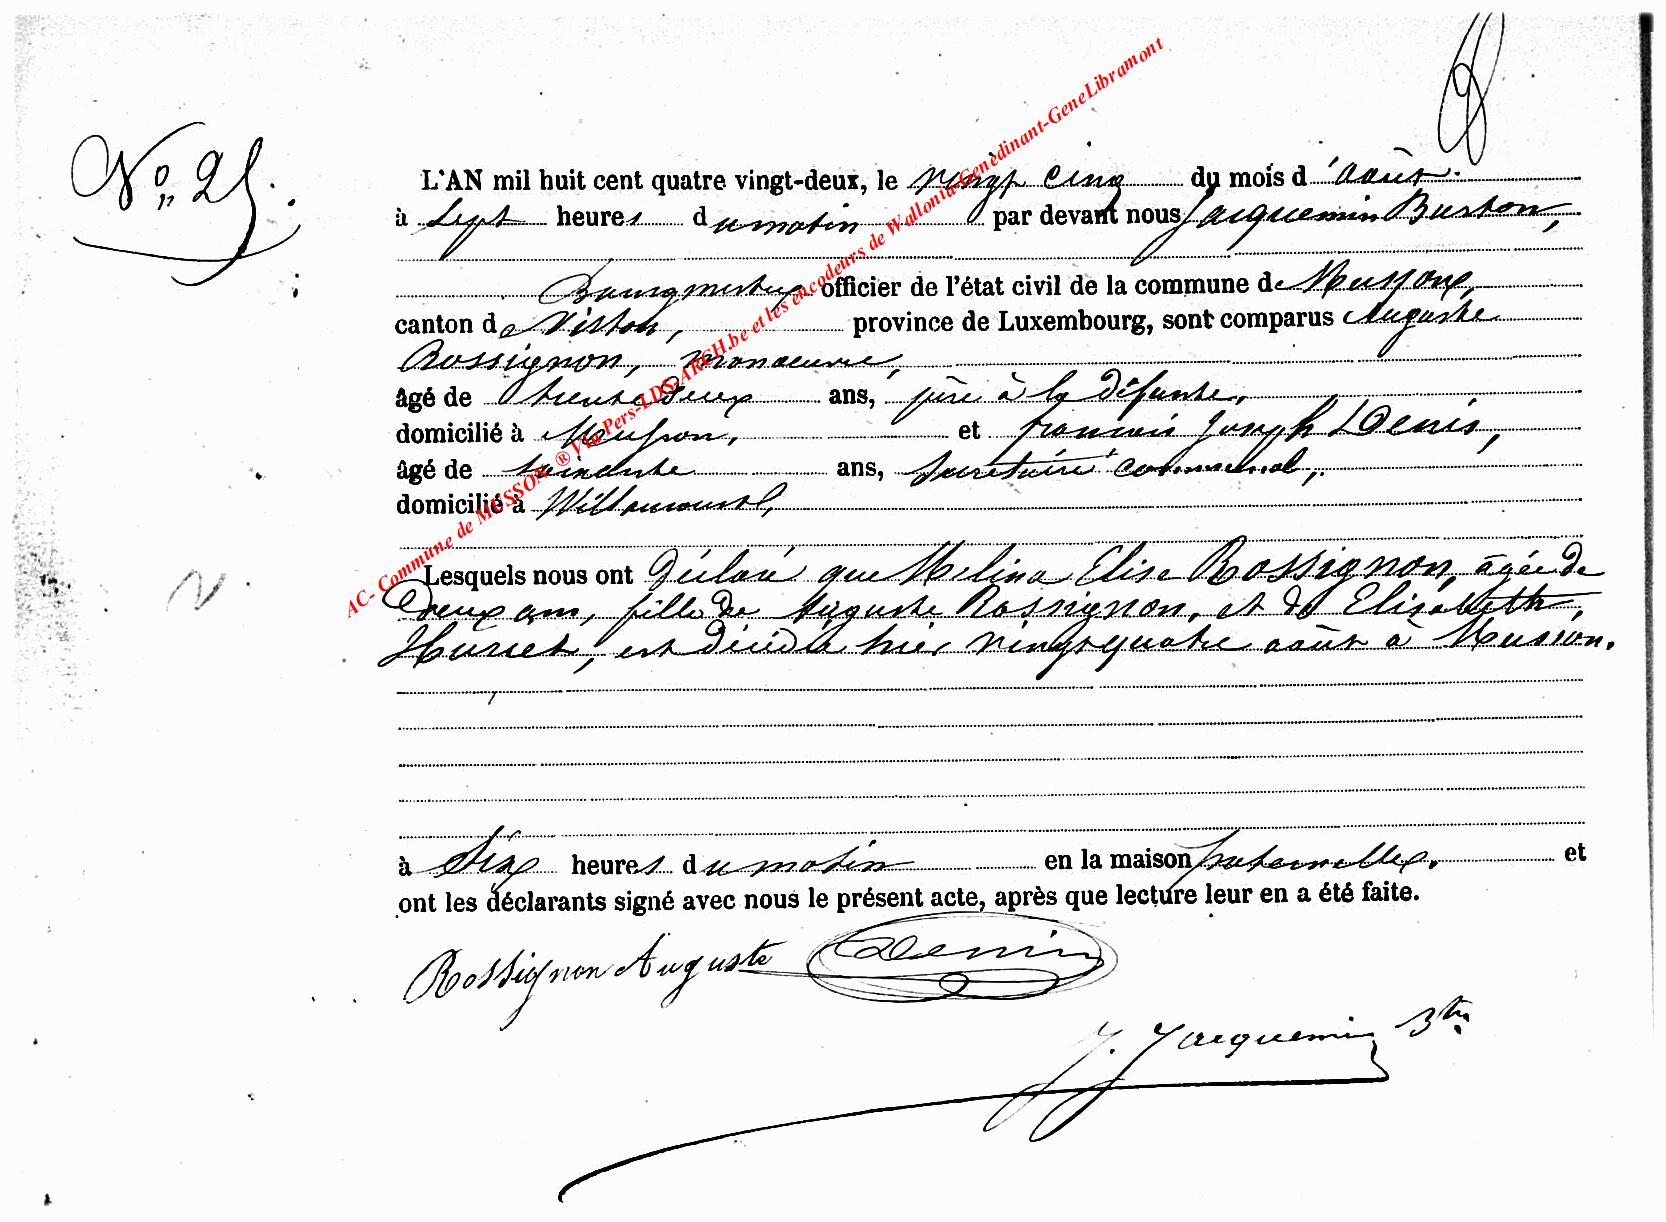 N° 25.
L'AN mil huit cent quatre vingt-deux, le vingt cinq du mois d'août.
à sept heures du matin par devant nous Jacquemin Burton,
Bourgmestre officier de l'état civil de la commune de Musson,
canton de Virton, province de Luxembourg, sont comparus Auguste
Rossignon, manoeuvre,
âgé de trente deux ans, père à la défunte,
domicilié à Musson, et françois Joseph Denis,
âgé de soixante ans, secrétaire communal,
domicilié à Willancourt,
Lesquels nous ont déclaré que Melina Elise Rossignon, âgée de
deux ans, fille de Auguste Rossignon, et de Elisabeth,
est décédée hier vingt quatre août à Musson.
à six heures du matin en la maison paternelle. et
ont les déclarants signé avec nous le présent acte, après que lecture leur en a été faite.
Rossignon Auguste Denis
J. Jacquemin Btn
AC- Commune de MUSSON ® Via Pers-LDS-ARCH.be et les encodeurs de Wallonia-Genedinant-GeneLibramont